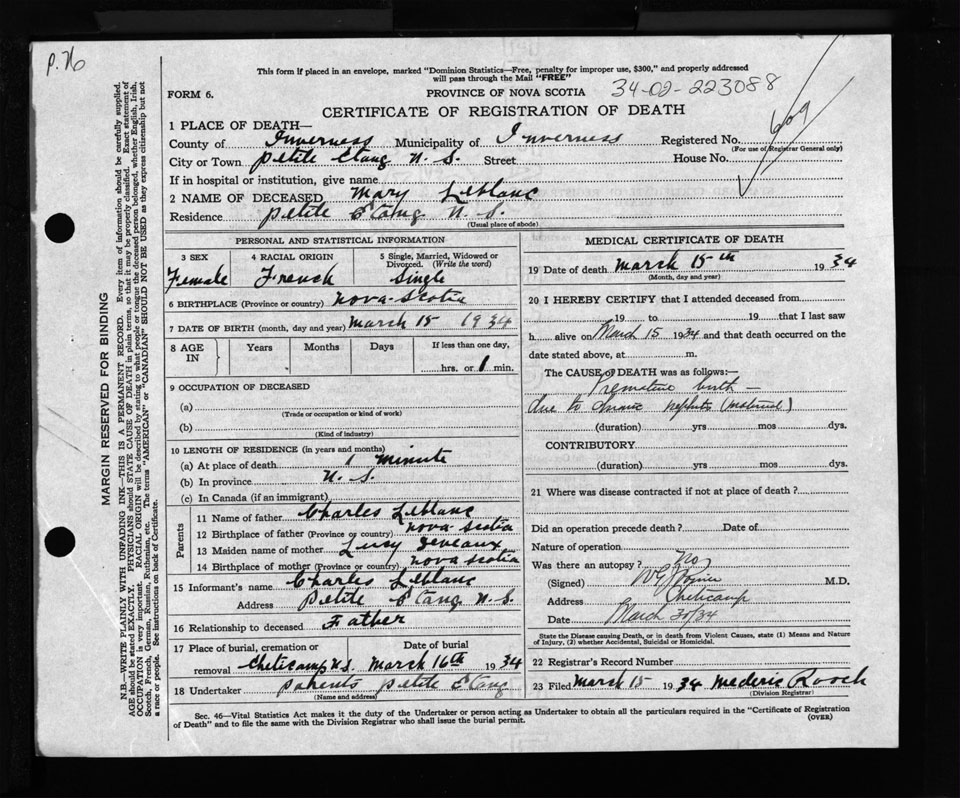 P.76
This form if placed in an envelope, marked "Dominion Statistics—Free, penalty for improper use, $300," and properly addressed
will pass through the Mail "FREE"
FORM 6. PROVINCE OF NOVA SCOTIA 34-02-223088
CERTIFICATE OF REGISTRATION OF DEATH
609
1 PLACE OF DEATH—
County of Inverness Municipality of Inverness Registered No.
(For use of Registrar General only)
City or Town Petite Etang N. S. Street House No.
If in hospital or institution, give name
2 NAME OF DECEASED Mary Leblanc
Residence Petite Etang N. S.
(Usual place of abode)
PERSONAL AND STATISTICAL INFORMATION
3 SEX 4 RACIAL ORIGIN 5 Single, Married, Widowed or
Divorced. (Write the word)
Female French Single
6 BIRTHPLACE (Province or country) Nova-Scotia
7 DATE OF BIRTH (month, day and year) March 15 1934
8 AGE IN Years Months Days If less than one day,
hrs. or 1 min.
9 OCCUPATION OF DECEASED
(a)
(Trade or occupation or kind of work)
(b)
(Kind of industry)
10 LENGTH OF RESIDENCE (in years and months)
(a) At place of death 1 minute
(b) In province N. S.
(c) In Canada (if an immigrant)
Parents
11 Name of father Charles Leblanc
12 Birthplace of father (Province or country) Nova-Scotia
13 Maiden name of mother Lucy Deveaux
14 Birthplace of mother (Province or country) Nova Scotia
15 Informant's name Charles Leblanc
Address Petite Etang N. S.
16 Relationship to deceased Father
17 Place of burial, cremation or Date of burial
removal Cheticamp N.S. March 16th 1934
18 Undertaker Parents Petite Etang
(Name and address)
MEDICAL CERTIFICATE OF DEATH
19 Date of death March 15th 1934
(Month, day and year)
20 I HEREBY CERTIFY that I attended deceased from
19 to 19 that I last saw
h alive on March 15 1934 and that death occurred on
date stated above, at m.
The CAUSE of DEATH was as follows:—
Premature birth —
due to chronic nephritis (maternal)
(duration) yrs mos dys.
CONTRIBUTORY
(duration) yrs mos dys.
21 Where was disease contracted if not at place of death?
Did an operation precede death? Date of
Nature of operation
Was there an autopsy? No
(Signed) M.D.
Address Cheticamp
Date March 30/34
State the Disease causing Death, or in death from Violent Causes, state (1) Means and Nature
of Injury, (2) whether Accidental, Suicidal or Homicidal.
22 Registrar's Record Number
23 Filed March 15 1934 Mederic Rooch
(Division Registrar)
Sec. 46—Vital Statistics Act makes it the duty of the Undertaker or person acting as Undertaker to obtain all the particulars required in the "Certificate of Registration
of Death" and to file the same with the Division Registrar who shall issue the burial permit. (OVER)
MARGIN RESERVED FOR BINDING
N.B.—WRITE PLAINLY WITH UNFADING INK—THIS IS A PERMANENT RECORD. Every item of information should be carefully supplied.
AGE should be stated EXACTLY. PHYSICIANS should STATE CAUSE OF DEATH in plain terms, so that it may be properly classified. Exact statement of
OCCUPATION is very important. RACIAL ORIGIN will be described by stating to what people or tongue the deceased person belonged, whether English, Irish,
Scotch, French, German, Russian, Ruthenian, etc. The terms "AMERICAN" or "CANADIAN" SHOULD NOT BE USED as they express citizenship but not
a race or people. See instructions on back of Certificate.